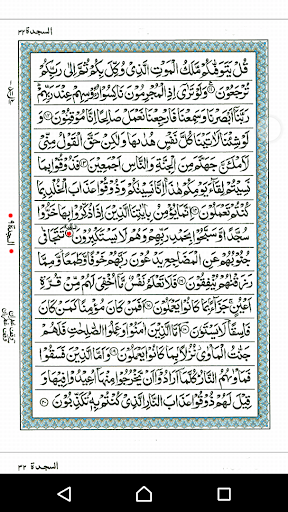 السجدة ٣٢
قُلْ يَتَوَفّٰىكُمْ مَّلَكُ الْمَوْتِ الَّذِيْ وُكِّلَ بِكُمْ ثُمَّ اِلٰى رَبِّكُمْ
تُرْجَعُوْنَ وَلَوْ تَرٰٓى اِذِ الْمُجْرِمُوْنَ نَاكِسُوْا رُءُوْسِهِمْ عِنْدَ رَبِّهِمْ
رَبَّنَآ اَبْصَرْنَا وَسَمِعْنَا فَارْجِعْنَا نَعْمَلْ صَالِحًا اِنَّا مُوْقِنُوْنَ
وَلَوْ شِئْنَا لَاٰتَيْنَا كُلَّ نَفْسٍ هُدٰىهَا وَلٰكِنْ حَقَّ الْقَوْلُ مِنِّيْ
لَاَمْلَـَٔنَّ جَهَنَّمَ مِنَ الْجِنَّةِ وَالنَّاسِ اَجْمَعِيْنَ فَذُوْقُوْا بِمَا
نَسِيْتُمْ لِقَآءَ يَوْمِكُمْ هٰذَا اِنَّا نَسِيْنٰكُمْ وَذُوْقُوْا عَذَابَ الْخُلْدِ بِمَا
كُنْتُمْ تَعْمَلُوْنَ اِنَّمَا يُؤْمِنُ بِاٰيٰتِنَا الَّذِيْنَ اِذَا ذُكِّرُوْا بِهَا خَرُّوْا
سُجَّدًا وَّسَبَّحُوْا بِحَمْدِ رَبِّهِمْ وَهُمْ لَا يَسْتَكْبِرُوْنَ تَتَجَافٰى
جُنُوْبُهُمْ عَنِ الْمَضَاجِعِ يَدْعُوْنَ رَبَّهُمْ خَوْفًا وَّطَمَعًا وَّمِمَّا
رَزَقْنٰهُمْ يُنْفِقُوْنَ فَلَا تَعْلَمُ نَفْسٌ مَّآ اُخْفِيَ لَهُمْ مِّنْ قُرَّةِ
اَعْيُنٍ جَزَآءً بِمَا كَانُوْا يَعْمَلُوْنَ اَفَمَنْ كَانَ مُؤْمِنًا كَمَنْ كَانَ
فَاسِقًا لَا يَسْتَوٗنَ اَمَّا الَّذِيْنَ اٰمَنُوْا وَعَمِلُوا الصّٰلِحٰتِ فَلَهُمْ
جَنّٰتُ الْمَاْوٰى نُزُلًا بِمَا كَانُوْا يَعْمَلُوْنَ وَاَمَّا الَّذِيْنَ فَسَقُوْا
فَمَاْوٰىهُمُ النَّارُ كُلَّمَآ اَرَادُوْٓا اَنْ يَّخْرُجُوْا مِنْهَآ اُعِيْدُوْا فِيْهَا وَ
قِيْلَ لَهُمْ ذُوْقُوْا عَذَابَ النَّارِ الَّذِيْ كُنْتُمْ بِهٖ تُكَذِّبُوْنَ ٢٠
السجدة ٩
السجدة ٣٢